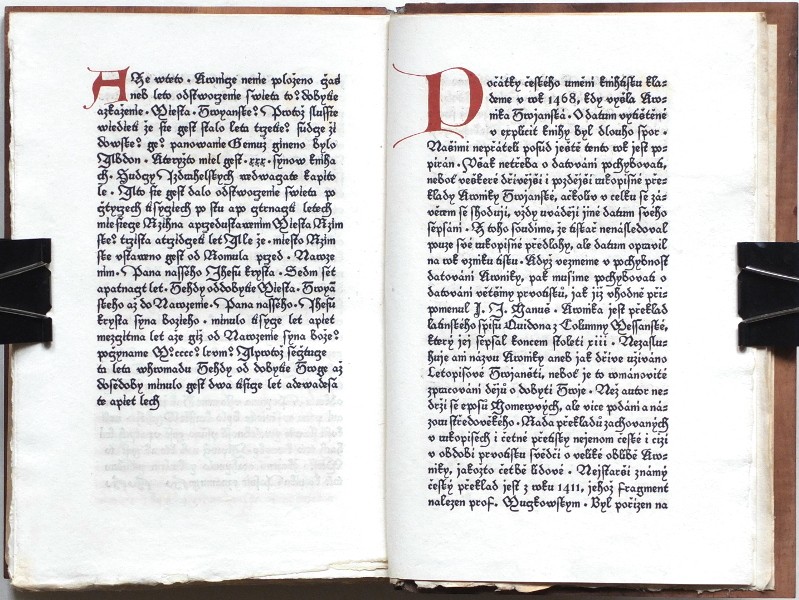 Aže wteto · Kronige nenie položeno čas
neb leto odstworzenie swieta to? dobytie
azkaženie · Miesta · Trojanske? · Protož slussie
wiedieti že sie gest stalo leta trzetie? sudge ži
dowske? ge? panowanie Gemuž gineno bylo
Abdon · Kteryžto miel gest · xxx · synow kniha
ch · Sudgy · Izdrahelskych wedwagate kapito
le · A to sie gest dalo odstworzenie swieta po
čtyrzech tisygiech po stu apo čtrnagti letech
miesiege Rzihna aprzedustawenim Miesta Rzim
ske? trzista atrzidgeti let Ale že · miesto Rzim
ske ustaweno gest od Romula przed · Naroze
nim · Pana nasseho · Ihesu krysta · Sedm set
apatnagt let · Tehdy oddobytie Miesta · Troya
skeho až do Narozenie · Pana nasseho · Ihesu
krysta syna bozieho · minulo tisyge let apiet
mezgitma let aže giž od Narozenie syna bože?
počyname M?cccc? lxvm? Aprotož sečtuge
ta leta whromadu Tehdy od dobytie Troge až
dosedoby minulo gest dwa tisíge let adewadesa
te apiet lech
Počátky českého umění knihtisku kla-
deme v rok 1468, kdy vyšla Kro-
nika Trojanská · O datum vytištěné
v explicit knihy byl dlouho spor ·
Našimi nepřáteli posud ještě tento rok jest po-
pírán · Však netřeba o datování pochybovati,
neboť veškeré dřívější i pozdější rukopisné pře-
klady Kroniky Trojanské, ačkoliv v celku se zá-
věrem se shodují, vždy uvádějí jiné datum svého
sepsání · Z toho soudíme, že tiskař nenásledoval
pouze své rukopisné předlohy, ale datum opravil
na rok vzniku tisku · Když vezmeme v pochybnost
datování Kroniky, pak musíme pochybovati o
datování většiny prvotisků, jak již vhodně při-
pomenul J. J. Hanuš · Kronika jest překlad
latinského spisu Quidona z Columny Messanské,
který jej sepsal koncem století xiii · Nezaslu-
huje ani názvu Kroniky aneb jak dříve užíváno
Letopisové Trojanští, neboť je to románovité
zpracování dějů o dobytí Troje · Než autor ne-
drží se eposů Homerových, ale více podání a ná-
zoru středověkého · Řada překladů zachovaných
v rukopisech i četné přetisky nejenom české i cizí
v období prvotisku svědčí o veliké oblibě Kro-
niky, jakožto četbě lidové · Nejstarší známý
český překlad jest z roku 1411, jehož fragment
nalezen prof. Mugkowským · Byl pořízen na